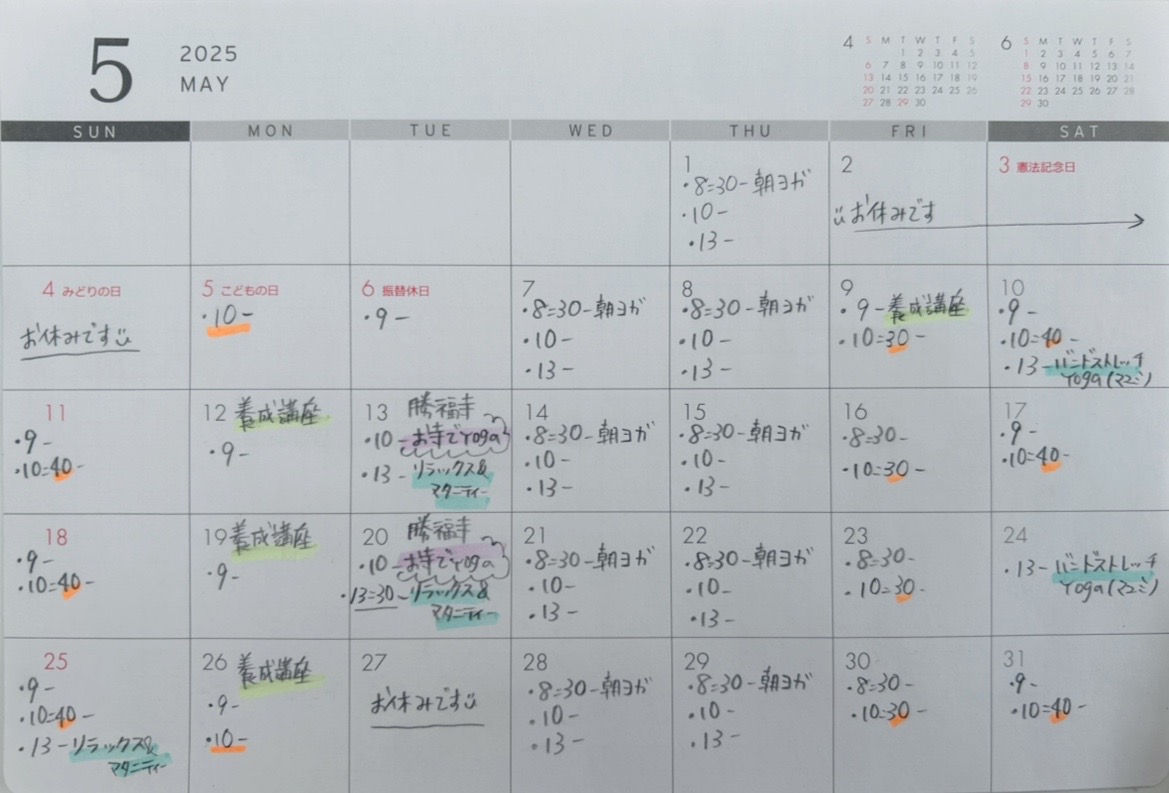 5
2025
MAY
4
S M T W T F S
1 2 3 4 5
6 7 8 9 10 11 12
13 14 15 16 17 18 19
20 21 22 23 24 25 26
27 28 29 30
6
S M T W T F S
1 2 3 4 5 6 7
8 9 10 11 12 13 14
15 16 17 18 19 20 21
22 23 24 25 26 27 28
29 30
SUN MON TUE WED THU FRI SAT
1
・8=30-朝ヨガ
・10-
・13-
2
お休みです
3 憲法記念日
4 みどりの日
お休みです
5 こどもの日
・10-
6 振替休日
・9-
7
・8=30-朝ヨガ
・10-
・13-
8
・8=30-朝ヨガ
・10-
・13-
9
・9-養成講座
・10=30-
10
・9-
・10=40-
・13-バンドストレッチ
Yoga(マユミ)
11
・9-
・10=40-
12 養成講座
・9-
13 勝福寺
・10-お寺でYoga
・13-リラックス&
マタニティー
14
・8=30-朝ヨガ
・10-
・13-
15
・8=30-朝ヨガ
・10-
・13-
16
・8=30-
・10=30-
17
・9-
・10=40-
18
・9-
・10=40-
19 養成講座
・9-
20 勝福寺
・10-お寺でYoga
・13=30-リラックス&
マタニティー
21
・8=30-朝ヨガ
・10-
・13-
22
・8=30-朝ヨガ
・10-
・13-
23
・8=30-
・10=30-
24
・13-バンドストレッチ
Yoga(マユミ)
25
・9-
・10=40-
・13-リラックス&
マタニティー
26 養成講座
・9-
・10-
27
お休みです
28
・8=30-朝ヨガ
・10-
・13-
29
・8=30-朝ヨガ
・10-
・13-
30
・8=30-
・10=30-
31
・9-
・10=40-